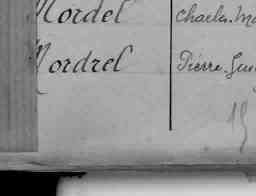 Mordel Charles. Ma
Mordrel Pierre. Gui
15